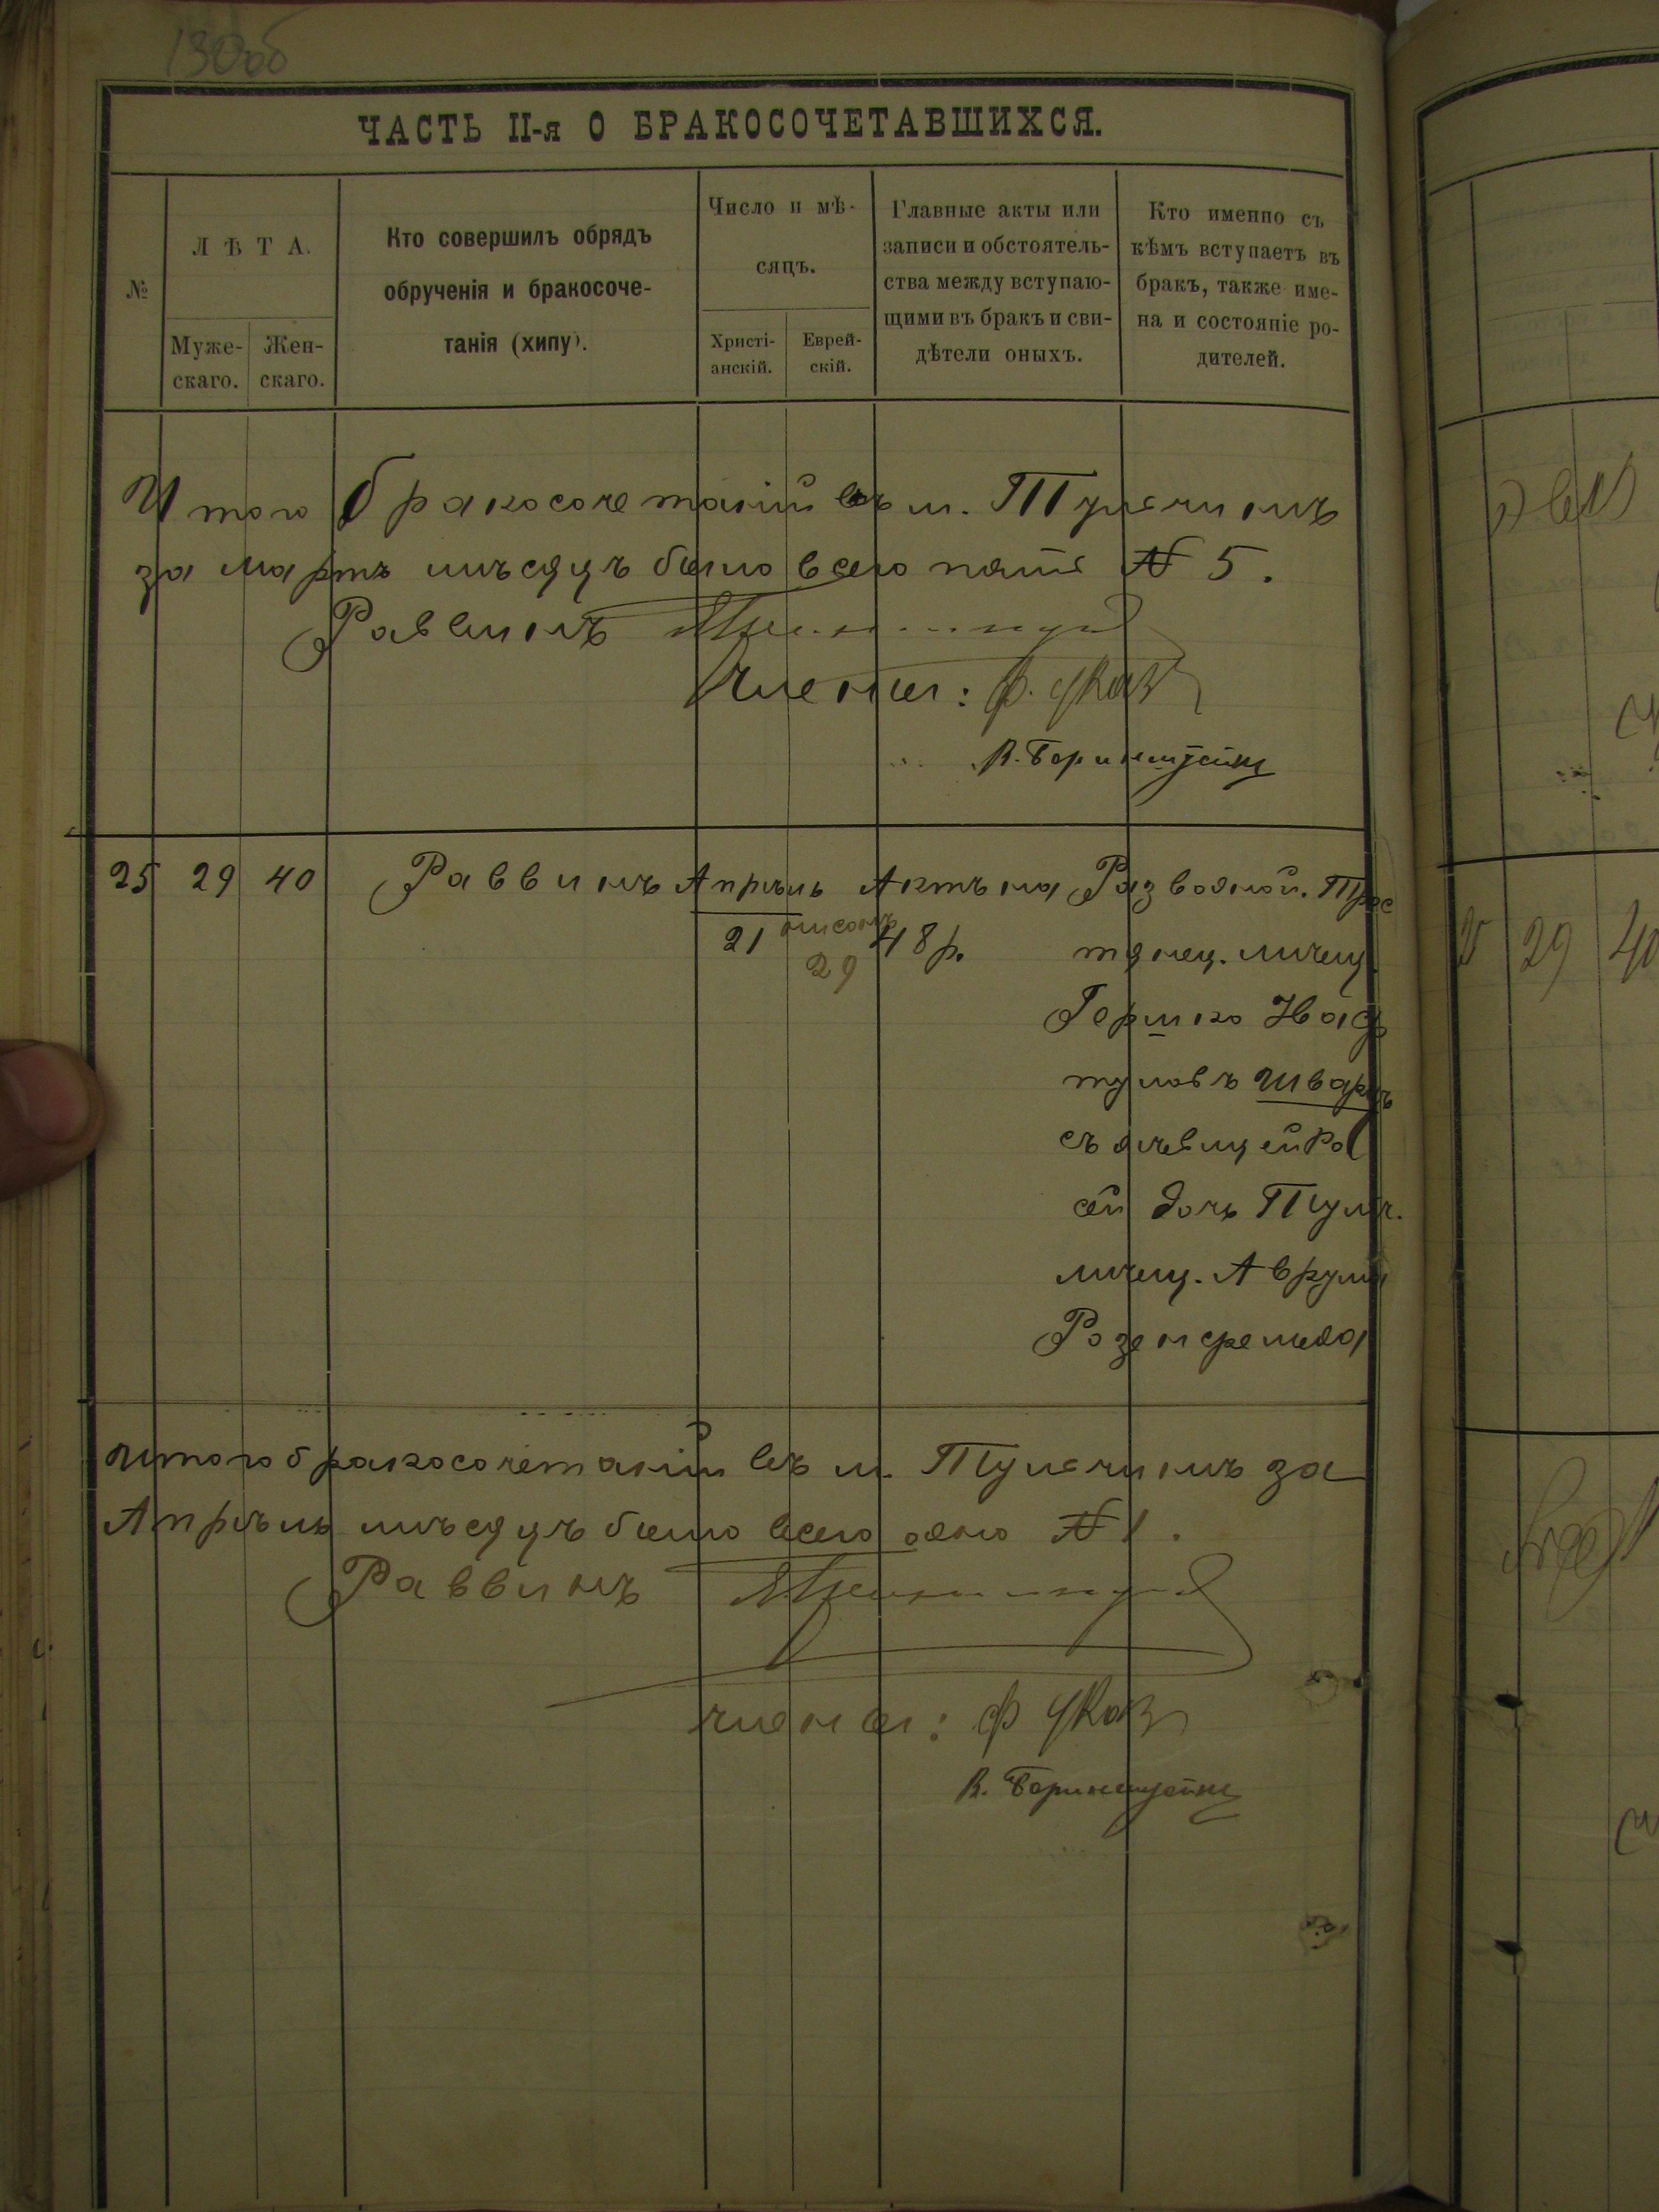 130об
ЧАСТЬ II-я О БРАКОСОЧЕТАВШИХСЯ.
№
ЛѢТА.
Муже-
скаго.
Жен-
скаго.
Кто совершилъ обрядъ
обрученія и бракосоче-
танія (хипу).
Число и мѣ-
сяцъ.
Христі-
анскій.
Еврей-
скій.
Главные акты или
записи и обстоятель-
ства между вступаю-
щими въ бракъ и сви-
дѣтели оныхъ.
Кто именно съ
кѣмъ вступаетъ въ
бракъ, также име-
на и состояніе ро-
дителей.
Итого бракосочетаній въ м. Тульчинѣ
за мартъ мѣсяцъ было всего пять № 5.
Раввинъ
Члены: Ф.
В. Боринштейнъ
25 29 40 Раввинъ Апрѣль Актъ на Разводной. Трос
21 нисонъ 29 48 р. тянец. мѣщ.
Гершко Наф
туловъ Шварцъ
съ дѣвицей Ро
сей дочь Тульч.
мѣщ. Аврума
Розенфельда
Итого бракосочетаній въ м. Тульчинѣ за
Апрѣль мѣсяцъ было всего одно № 1.
Раввинъ
Члены: Ф
В. Боринштейнъ
29 40